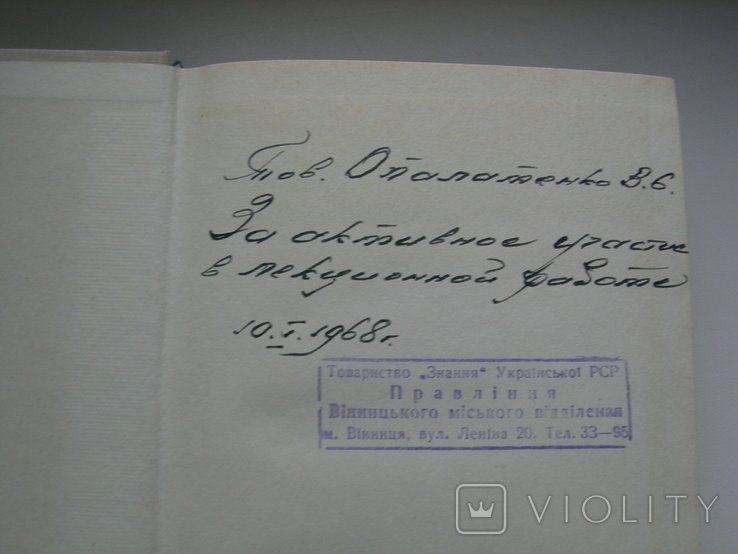 Тов. Опалатенко В.Б.
За активное участие
в лекционной работе
10.I.1968г.
Товариство „Знання" Української РСР
Правління
Вінницького міського відділення
м. Вінниця, вул. Леніна 20. Тел. 33—95
VIOLITY